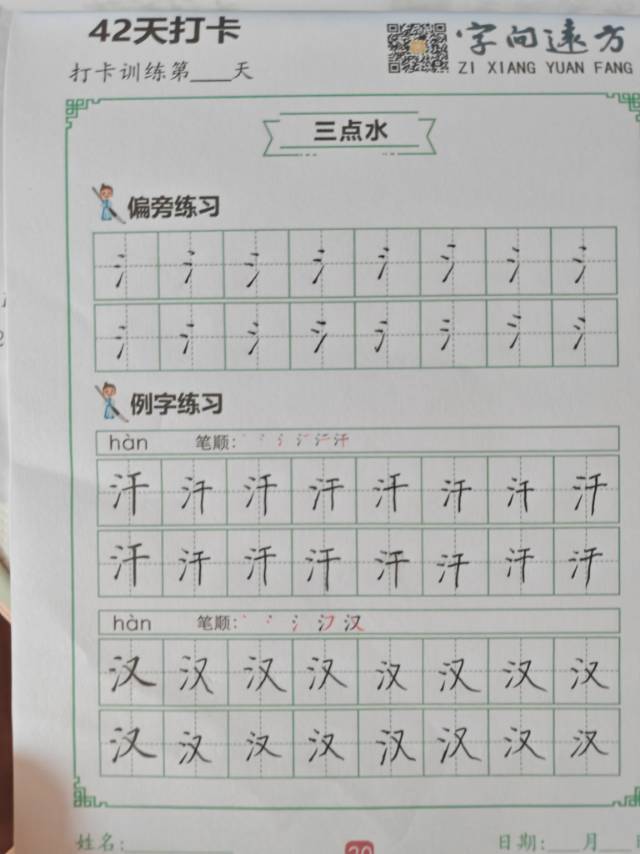 42天打卡
字向远方
ZI XIANG YUAN FANG
打卡训练第____天
三点水
偏旁练习
氵 氵 氵 氵 氵 氵 氵 氵
氵 氵 氵 氵 氵 氵 氵 氵
例字练习
hàn 笔顺:
汗 汗 汗 汗 汗 汗 汗 汗
汗 汗 汗 汗 汗 汗 汗 汗
hàn 笔顺: 氵 汉
汉 汉 汉 汉 汉 汉 汉 汉
汉 汉 汉 汉 汉 汉 汉 汉
姓名:
日期:___月